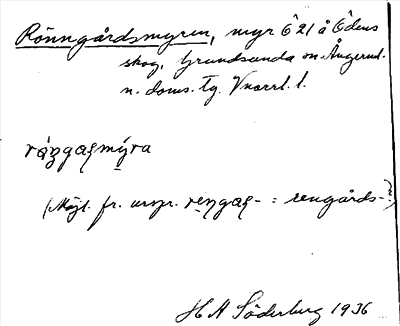 Rönngårdsmyren, myr Ö 21 å Ödens
skog, Grundsunda sn. Ångerml.
n. doms. tg. Vnorrl. l.
myra
(Möjl. fr. urspr. : rengårds-?)
H A Söderberg 1936